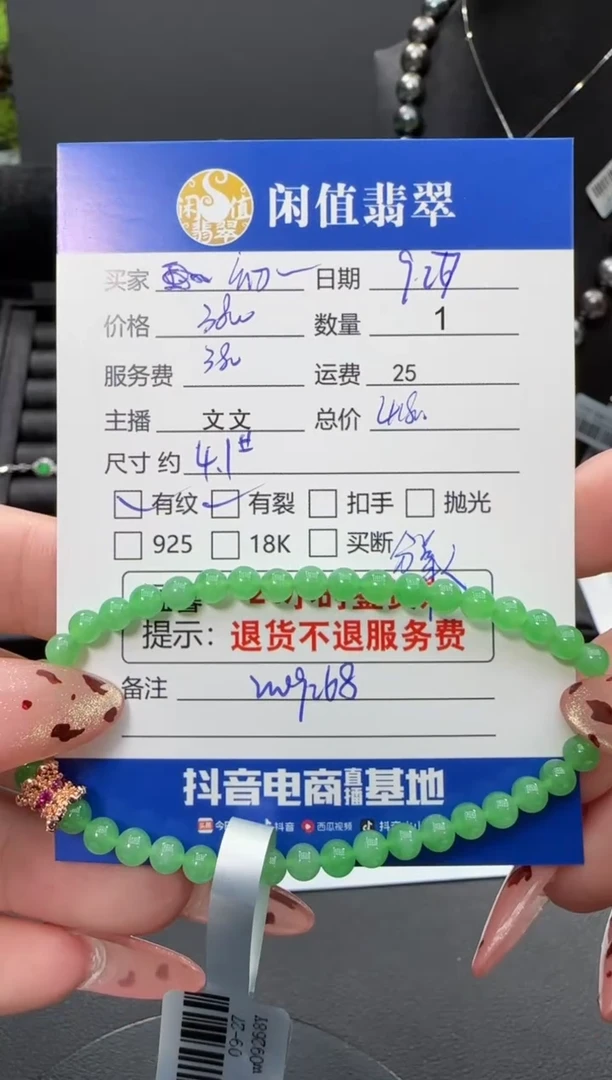 闲值翡翠
闲值翡翠
买家 初一 日期 9.27
价格 3800 数量 1
服务费 380 运费 25
主播 文文 总价
尺寸 约 4.1
有纹 有裂 扣手 抛光
925 18K 买断
提示：退货不退服务费
备注
抖音电商直播基地
抖音 西瓜视频
09-27